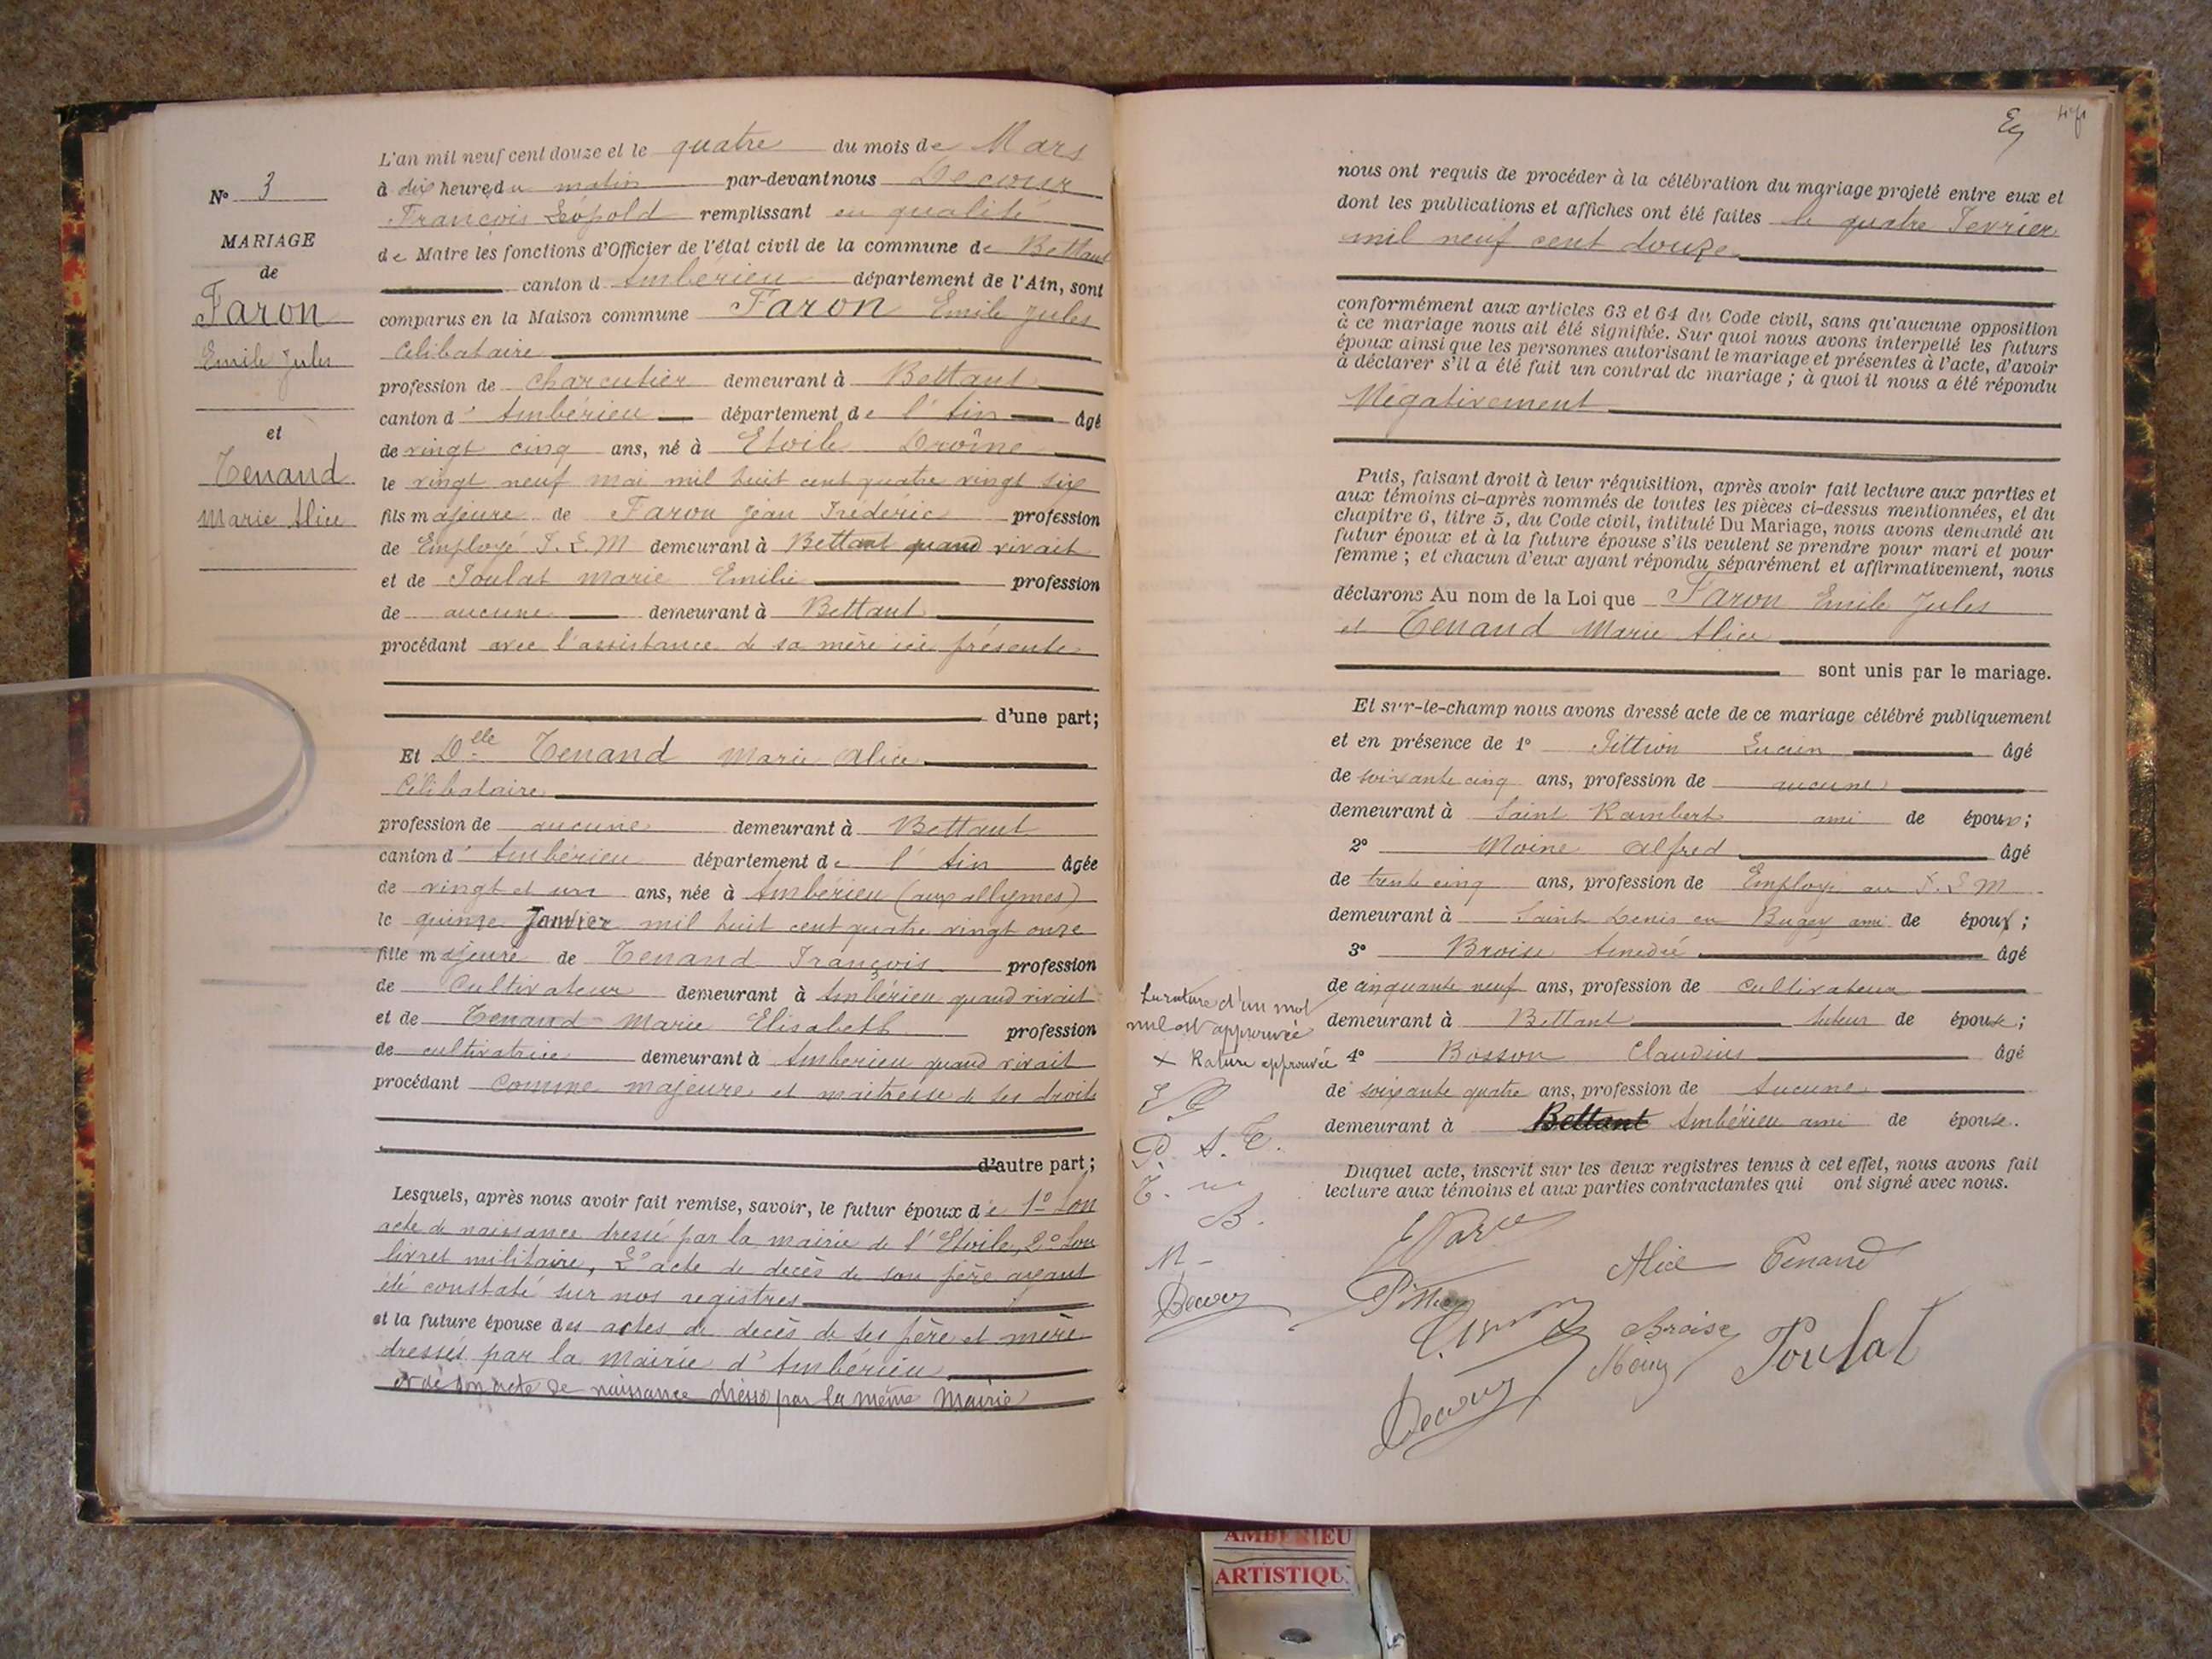 N° 3
MARIAGE
de
Faron
Emile Jules
et
Tenand
Marie Alice
L'an mil neuf cent douze et le quatre du mois de Mars
à dix heures du matin par-devant nous Decour
François Léopold remplissant en qualité
de Maire les fonctions d'Officier de l'état civil de la commune de Bettant
canton d Ambérieu département de l'Ain, sont
comparus en la Maison commune Faron Emile Jules
Célibataire
profession de charcutier demeurant à Bettant
canton d' Ambérieu département de l'Ain âgé
de vingt cinq ans, né à Etoile Drôme
le vingt neuf mai mil huit cent quatre vingt six
fils majeure de Faron Jean Frédéric profession
de Employé P.L.M demeurant à Bettant quand vivait
et de Poulat Marie Emilie profession
de aucune demeurant à Bettant
procédant avec l'assistance de sa mère ici présente
d'une part;
Et Delle Tenand Marie Alice
Célibataire
profession de aucune demeurant à Bettant
canton d' Ambérieu département de l'Ain âgée
de vingt et un ans, née à Ambérieu (aux allymes)
le quinze Janvier mil huit cent quatre vingt onze
fille majeure de Tenand François profession
de Cultivateur demeurant à Ambérieu quand vivait
et de Tenand Marie Elisabeth profession
de cultivatrice demeurant à Amberieu quand vivait
procédant comme majeure et maitresse de ses droits
d'autre part;
Lesquels, après nous avoir fait remise, savoir, le futur époux de 1° Son
acte de naissance dressé par la mairie de l'Etoile, 2° Son
livret militaire, 3° acte de decès de son père ayant
été constaté sur nos registres
et la future épouse des actes de decès de ses père et mère
dressés par la Mairie d'Ambérieu
et de son acte de naissance dressé par la même Mairie
nous ont requis de procéder à la célébration du mariage projeté entre eux et
dont les publications et affiches ont été faites le quatre Fevrier
mil neuf cent douze
conformément aux articles 63 et 64 du Code civil, sans qu'aucune opposition
à ce mariage nous ait été signifiée. Sur quoi nous avons interpellé les futurs
époux ainsi que les personnes autorisant le mariage et présentes à l'acte, d'avoir
à déclarer s'il a été fait un contrat de mariage ; à quoi il nous a été répondu
Négativement
Puis, faisant droit à leur réquisition, après avoir fait lecture aux parties et
aux témoins ci-après nommés de toutes les pièces ci-dessus mentionnées, et du
chapitre 6, titre 5, du Code civil, intitulé Du Mariage, nous avons demandé au
futur époux et à la future épouse s'ils veulent se prendre pour mari et pour
femme ; et chacun d'eux ayant répondu séparément et affirmativement, nous
déclarons Au nom de la Loi que Faron Emile Jules
et Tenand Marie Alice
sont unis par le mariage.
Et sur-le-champ nous avons dressé acte de ce mariage célébré publiquement
et en présence de 1° Pittion Lucien âgé
de soixante cinq ans, profession de aucune
demeurant à Saint Rambert ami de époux;
2° Moine Alfred âgé
de trente cinq ans, profession de Employé au P.L.M
demeurant à Saint Denis en Bugey ami de époux ;
3° Broise Amedié âgé
de cinquante neuf ans, profession de Cultivateur
demeurant à Bettant tuteur de épouse ;
4° Bosson Claudius âgé
de soixante quatre ans, profession de Aucune
demeurant à Bettant Ambérieu ami de épouse.
Duquel acte, inscrit sur les deux registres tenus à cet effet, nous avons fait
lecture aux témoins et aux parties contractantes qui ont signé avec nous.
La rature d'un mot
nul est approuvée
x Rature approuvée
P. A. T.
B.
M
Decour
Alice Tenand
Pittion
Broise
Poulat
Decour
AMBERIEU
ARTISTIQU